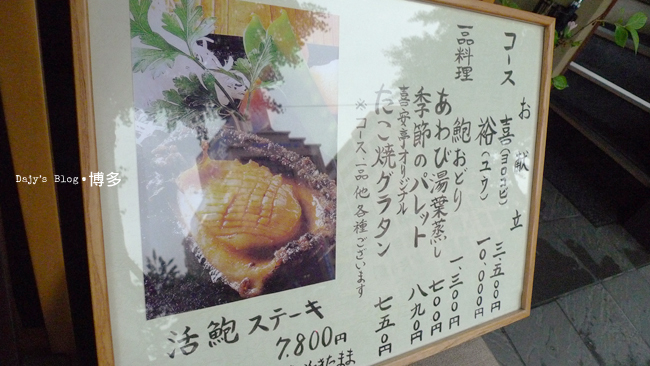 お献立
コース 喜(ヨロコビ) 三、五〇〇円
裕(ユウ) 一〇、〇〇〇円
一品料理 鮑おどり 一、三〇〇円
あわび湯葉蒸し 七〇〇円
季節のパレット 八九〇円
喜安亭オリジナル
たこ焼グラタン 七五〇円
※コース、一品他各種ございます
活鮑ステーキ
7,800円
Dajy's Blog•博多